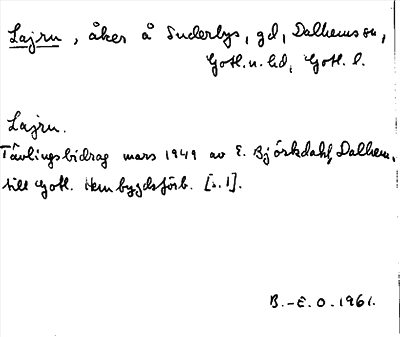 Lajru, åker å Suderbys, gd, Dalhems sn,
Gotl. n. hd, Gotl. l.
Lajru.
Tävlingsbidrag mars 1949 av E. Björkdahl, Dalhem,
till Gotl. Hembygdsförb. [s. 1].
B.-E. O. 1961.